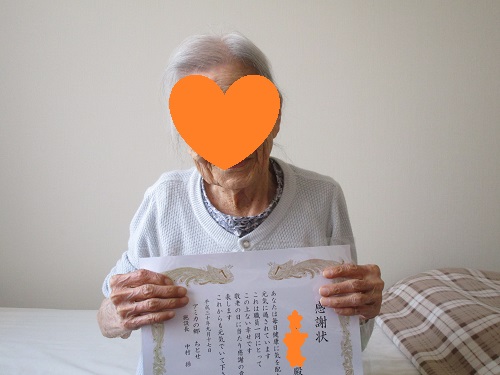 感謝状
殿
あなたは毎日健康に気を配
元気に過されています
これは職員一同にとって
この上ない幸せです
敬老の日に当たり感謝の意
表します
これからも元気でいて下さ
平成三十年九月十七日
アミカの郷
施設長 中村